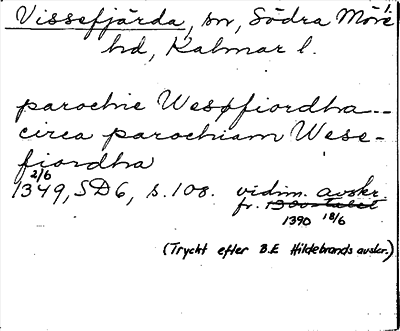 1.
Vissefjärda, sn, Södra Möre
hd, Kalmar l.
parochie Wesøfiordha--
circa parochiam Wese-
fiordha
2/6
1349, SD6, s. 108. vidim. avskr
fr. 1390 18/6
(Tryckt efter B.E Hildebrands avskr.)